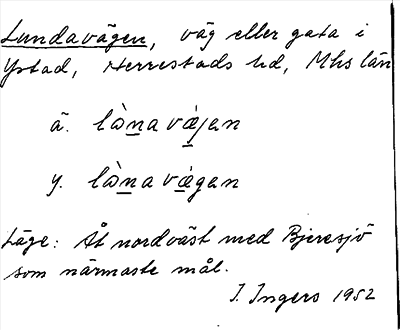 Lundavägen, väg eller gata i
Ystad, Herrestads hd, Mhs län
ä. lònavǽjen
y. lònavǽgen
Läge: Åt nordväst med Bjeresjö
som närmaste mål.
I. Ingers 1952